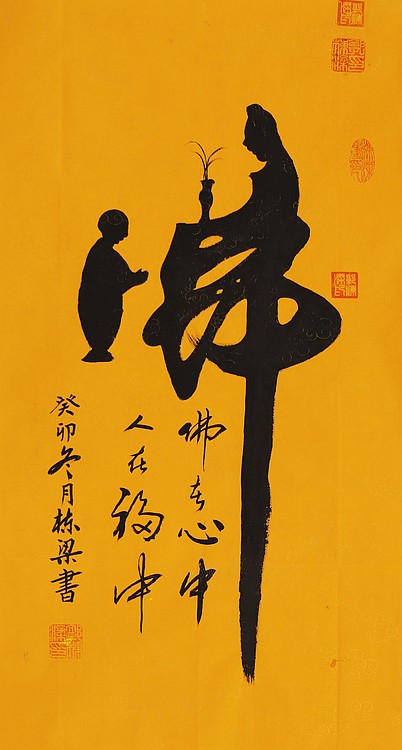 佛
佛在心中
人在福中
癸卯冬月栋梁書